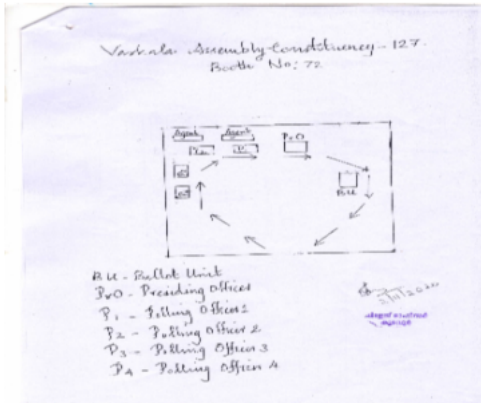 Varkala Assembly Constituency - 127.
Booth No: 72
Agent Agent PrO
BU
BU - Ballot Unit
PrO - Presiding Officer
P1 - Polling Officer 1
P2 - Polling Officer 2
P3 - Polling Officer 3
P4 - Polling Officer 4